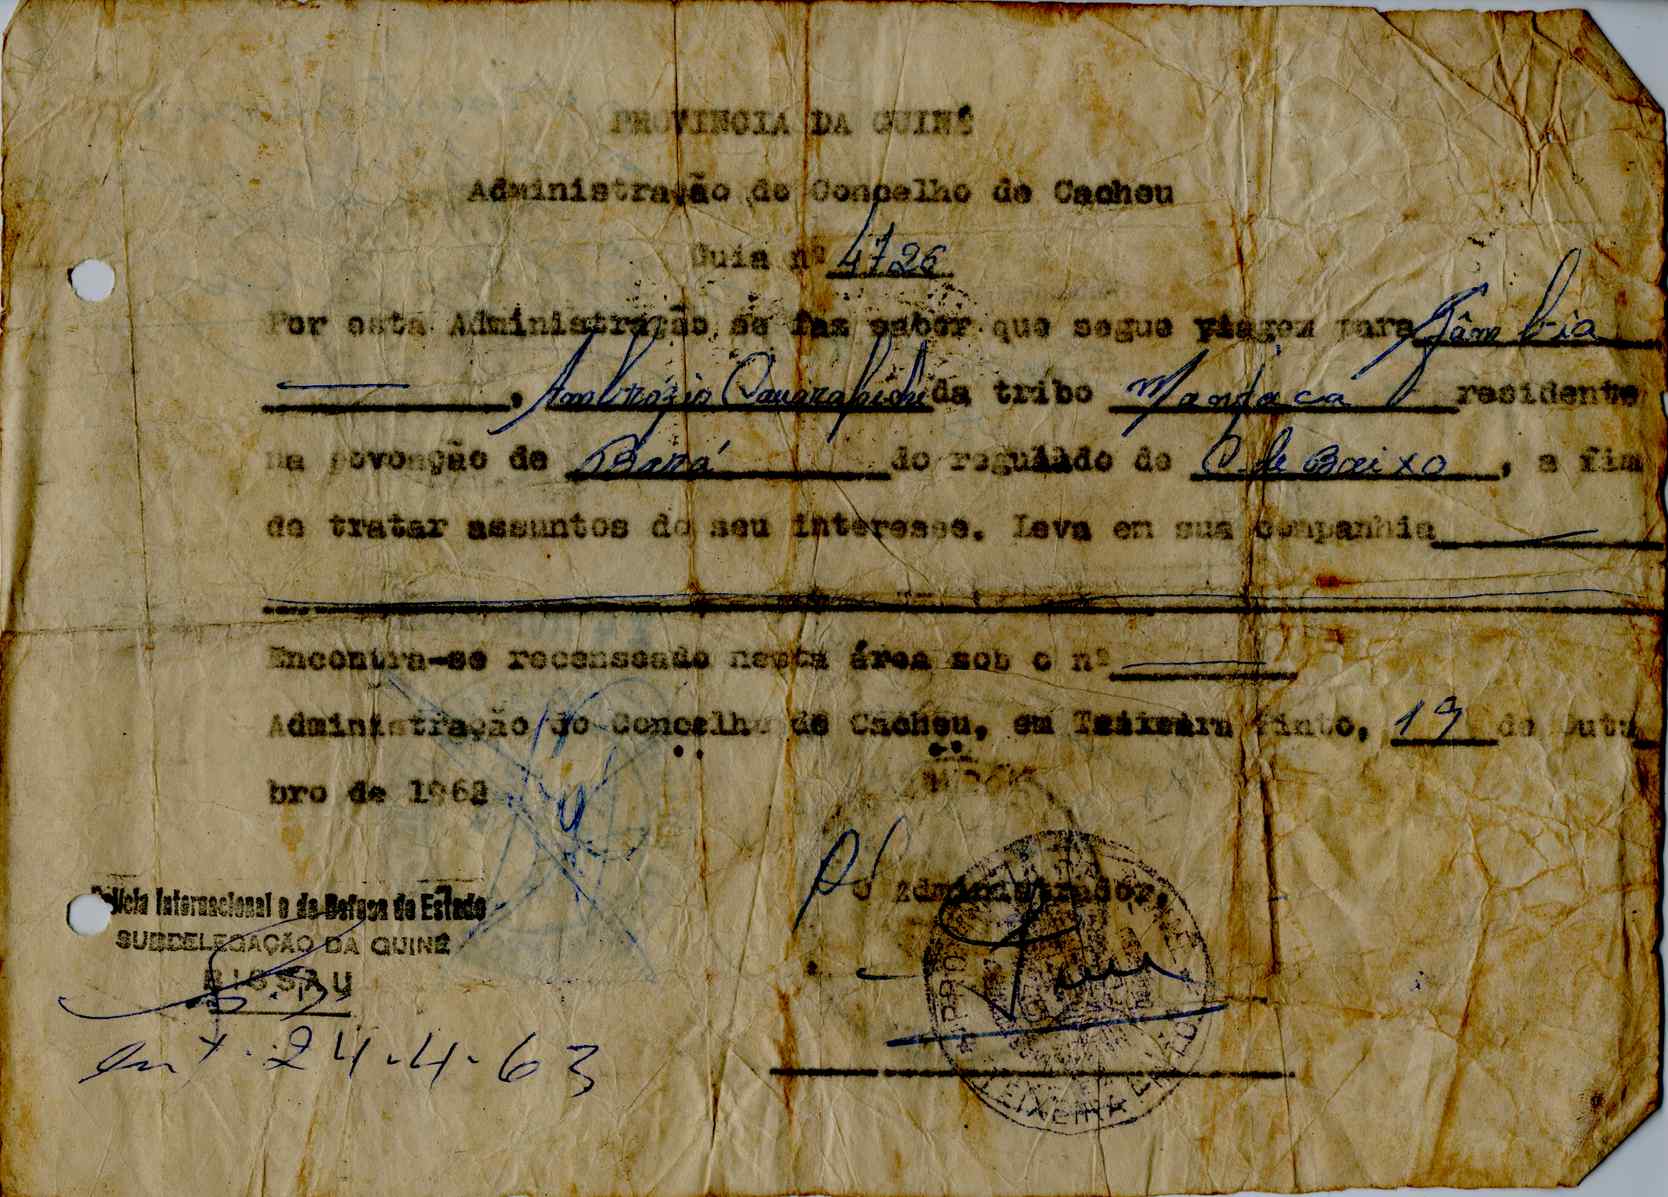 PROVINCIA DA GUINÉ
Administração do Concelho de Cacheu
Guia nº 4726
Por esta Administração, se faz saber que segue viagem para Gâmbia
, Ambrózio da tribo Manjaca residente
na povoação de Bará do regulado de C. de Baixo, a fim
de tratar assuntos do seu interesse. Leva em sua companhia
Encontra-se recenseado nesta área sob o nº
Administração do Concelho de Cacheu, em Teixeira Pinto, 19 de Outu
bro de 1962
O Administrador,
Polícia Internacional e de Defesa do Estado
SUBDELEGAÇÃO DA GUINÉ
BISSAU
ent. 24-4-63
TEIXEIRA PINTO